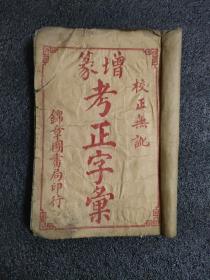 增篆
校正無訛
考正字彙
錦章圖書局印行